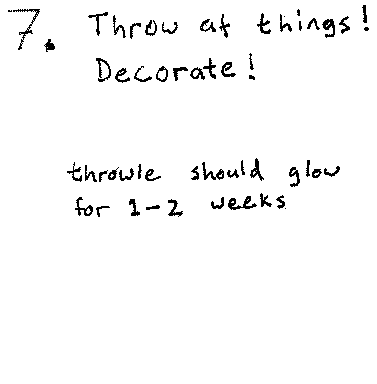 7. Throw at things!
Decorate!
throwie should glow
for 1-2 weeks